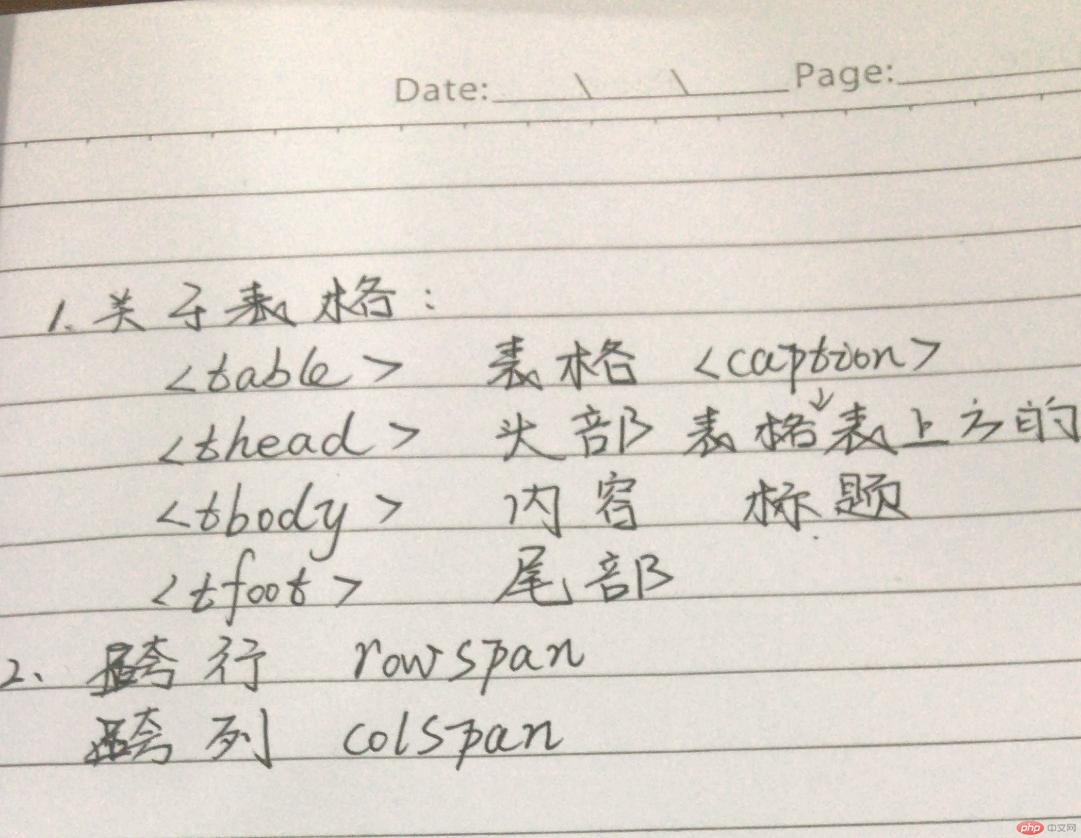 Date: \ \ Page:
1. 关于表格:
<table> 表格 <caption>
<thead> 头部 表格↓表上方的
<tbody> 内容 标题
<tfoot> 尾部
2、跨行 rowspan
跨列 colspan
php 中文网